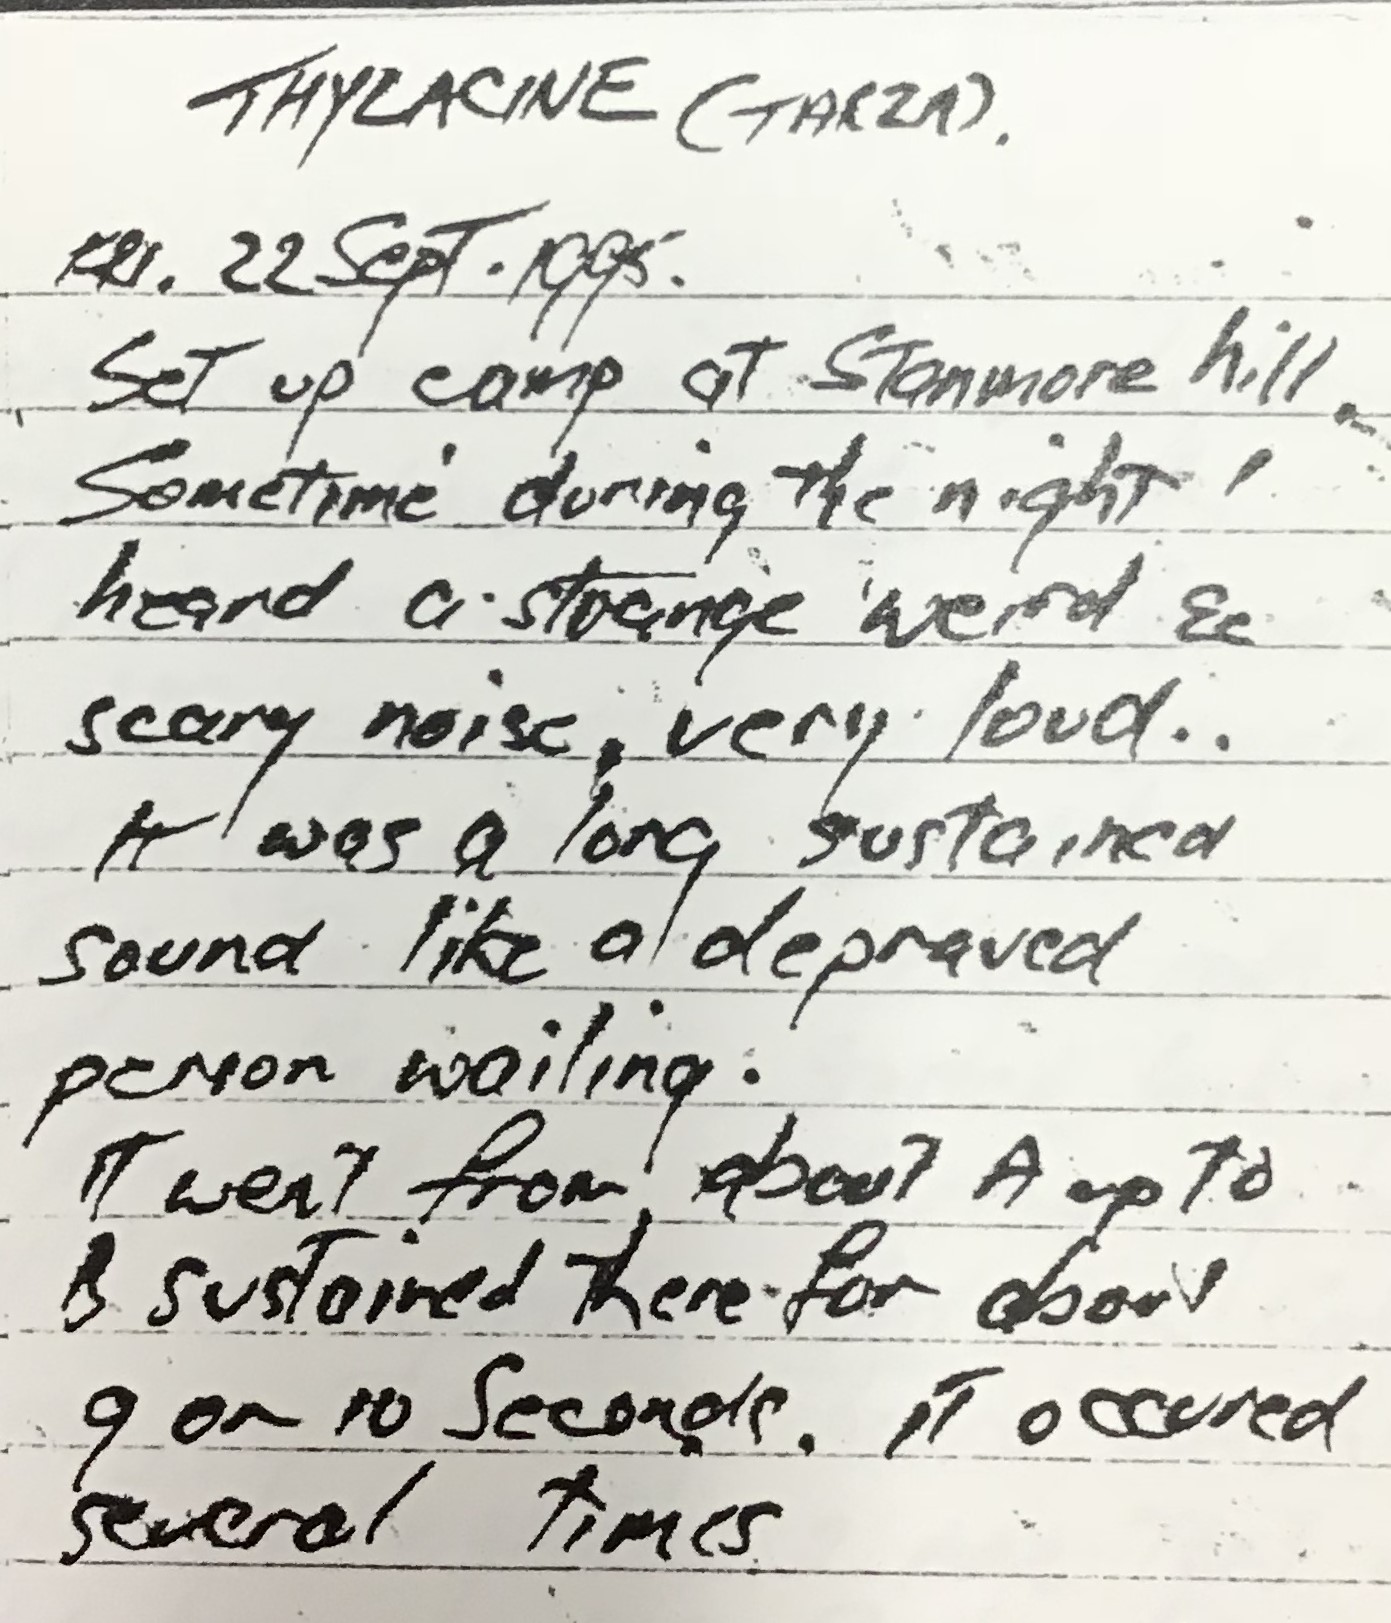 THYLACINE (TARZA).
FRI. 22 Sept. 1995.
Set up camp at Stanmore hill.
Sometime during the night I
heard a strange weird &
scary noise, very loud..
It was a long sustained
sound like a depraved
person wailing.
IT went from about A up to
B sustained there for about
9 or 10 Seconds. IT occured
several times